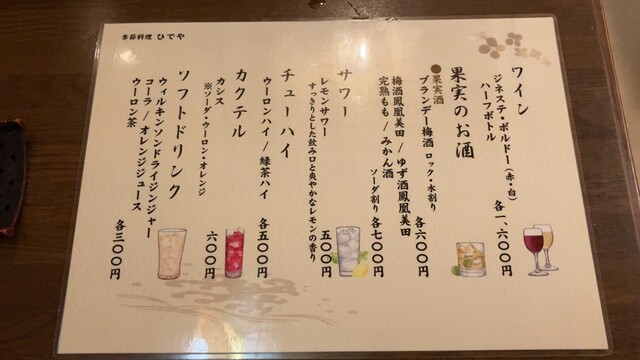 季節料理 ひでや
ワイン
ジネステ・ボルドー(赤・白)
ハーフボトル
各一、六〇〇円
果実のお酒
●果実酒
ブランデー梅酒 ロック・水割り
各六〇〇円
梅酒鳳凰美田 / ゆず酒鳳凰美田
完熟もも / みかん酒
ソーダ割り 各七〇〇円
サワー
レモンサワー
すっきりとした飲み口と爽やかなレモンの香り
五〇〇円
チューハイ
ウーロンハイ / 緑茶ハイ
各五〇〇円
カクテル
カシス
※ソーダ・ウーロン・オレンジ
六〇〇円
ソフトドリンク
ウィルキンソンドライジンジャー
コーラ / オレンジジュース
ウーロン茶
各三〇〇円